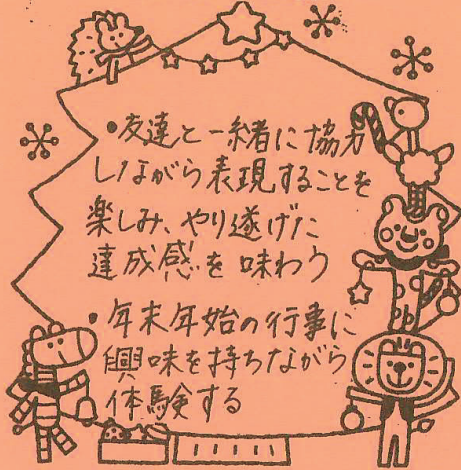 ・友達と一緒に協力
しながら表現することを
楽しみ、やり遂げた
達成感を味わう
・年末年始の行事に
興味を持ちながら
体験する